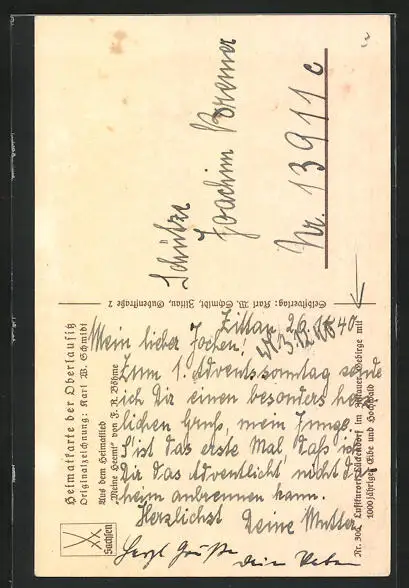 Heimatkarte der Oberlausitz
Originalzeichnung: Karl W. Schmidt
Aus dem Heimatlied
„Meine Heemt“ von F. R. Böhme
Sachsen
Selbstverlag: Karl W. Schmidt, Zittau, Gubenstraße 2
Nr. 306 Luftkurort Lückendorf im Zittauer Gebirge mit
1000jährige Eibe und Hochwald
Schütze
Joachim Bremer
Nr. 13911 c
Zittau, 26. 11. 40
Mein lieber Jochen!
Zum 1. Adventssonntag sende
ich Dir einen besonders herz-
lichen Gruß, mein Junge.
S'ist das erste Mal, daß ich
Dir das Adventlicht nicht da-
heim anbrennen kann.
Herzlichst Deine Mutter
Herzl Grüße
dein